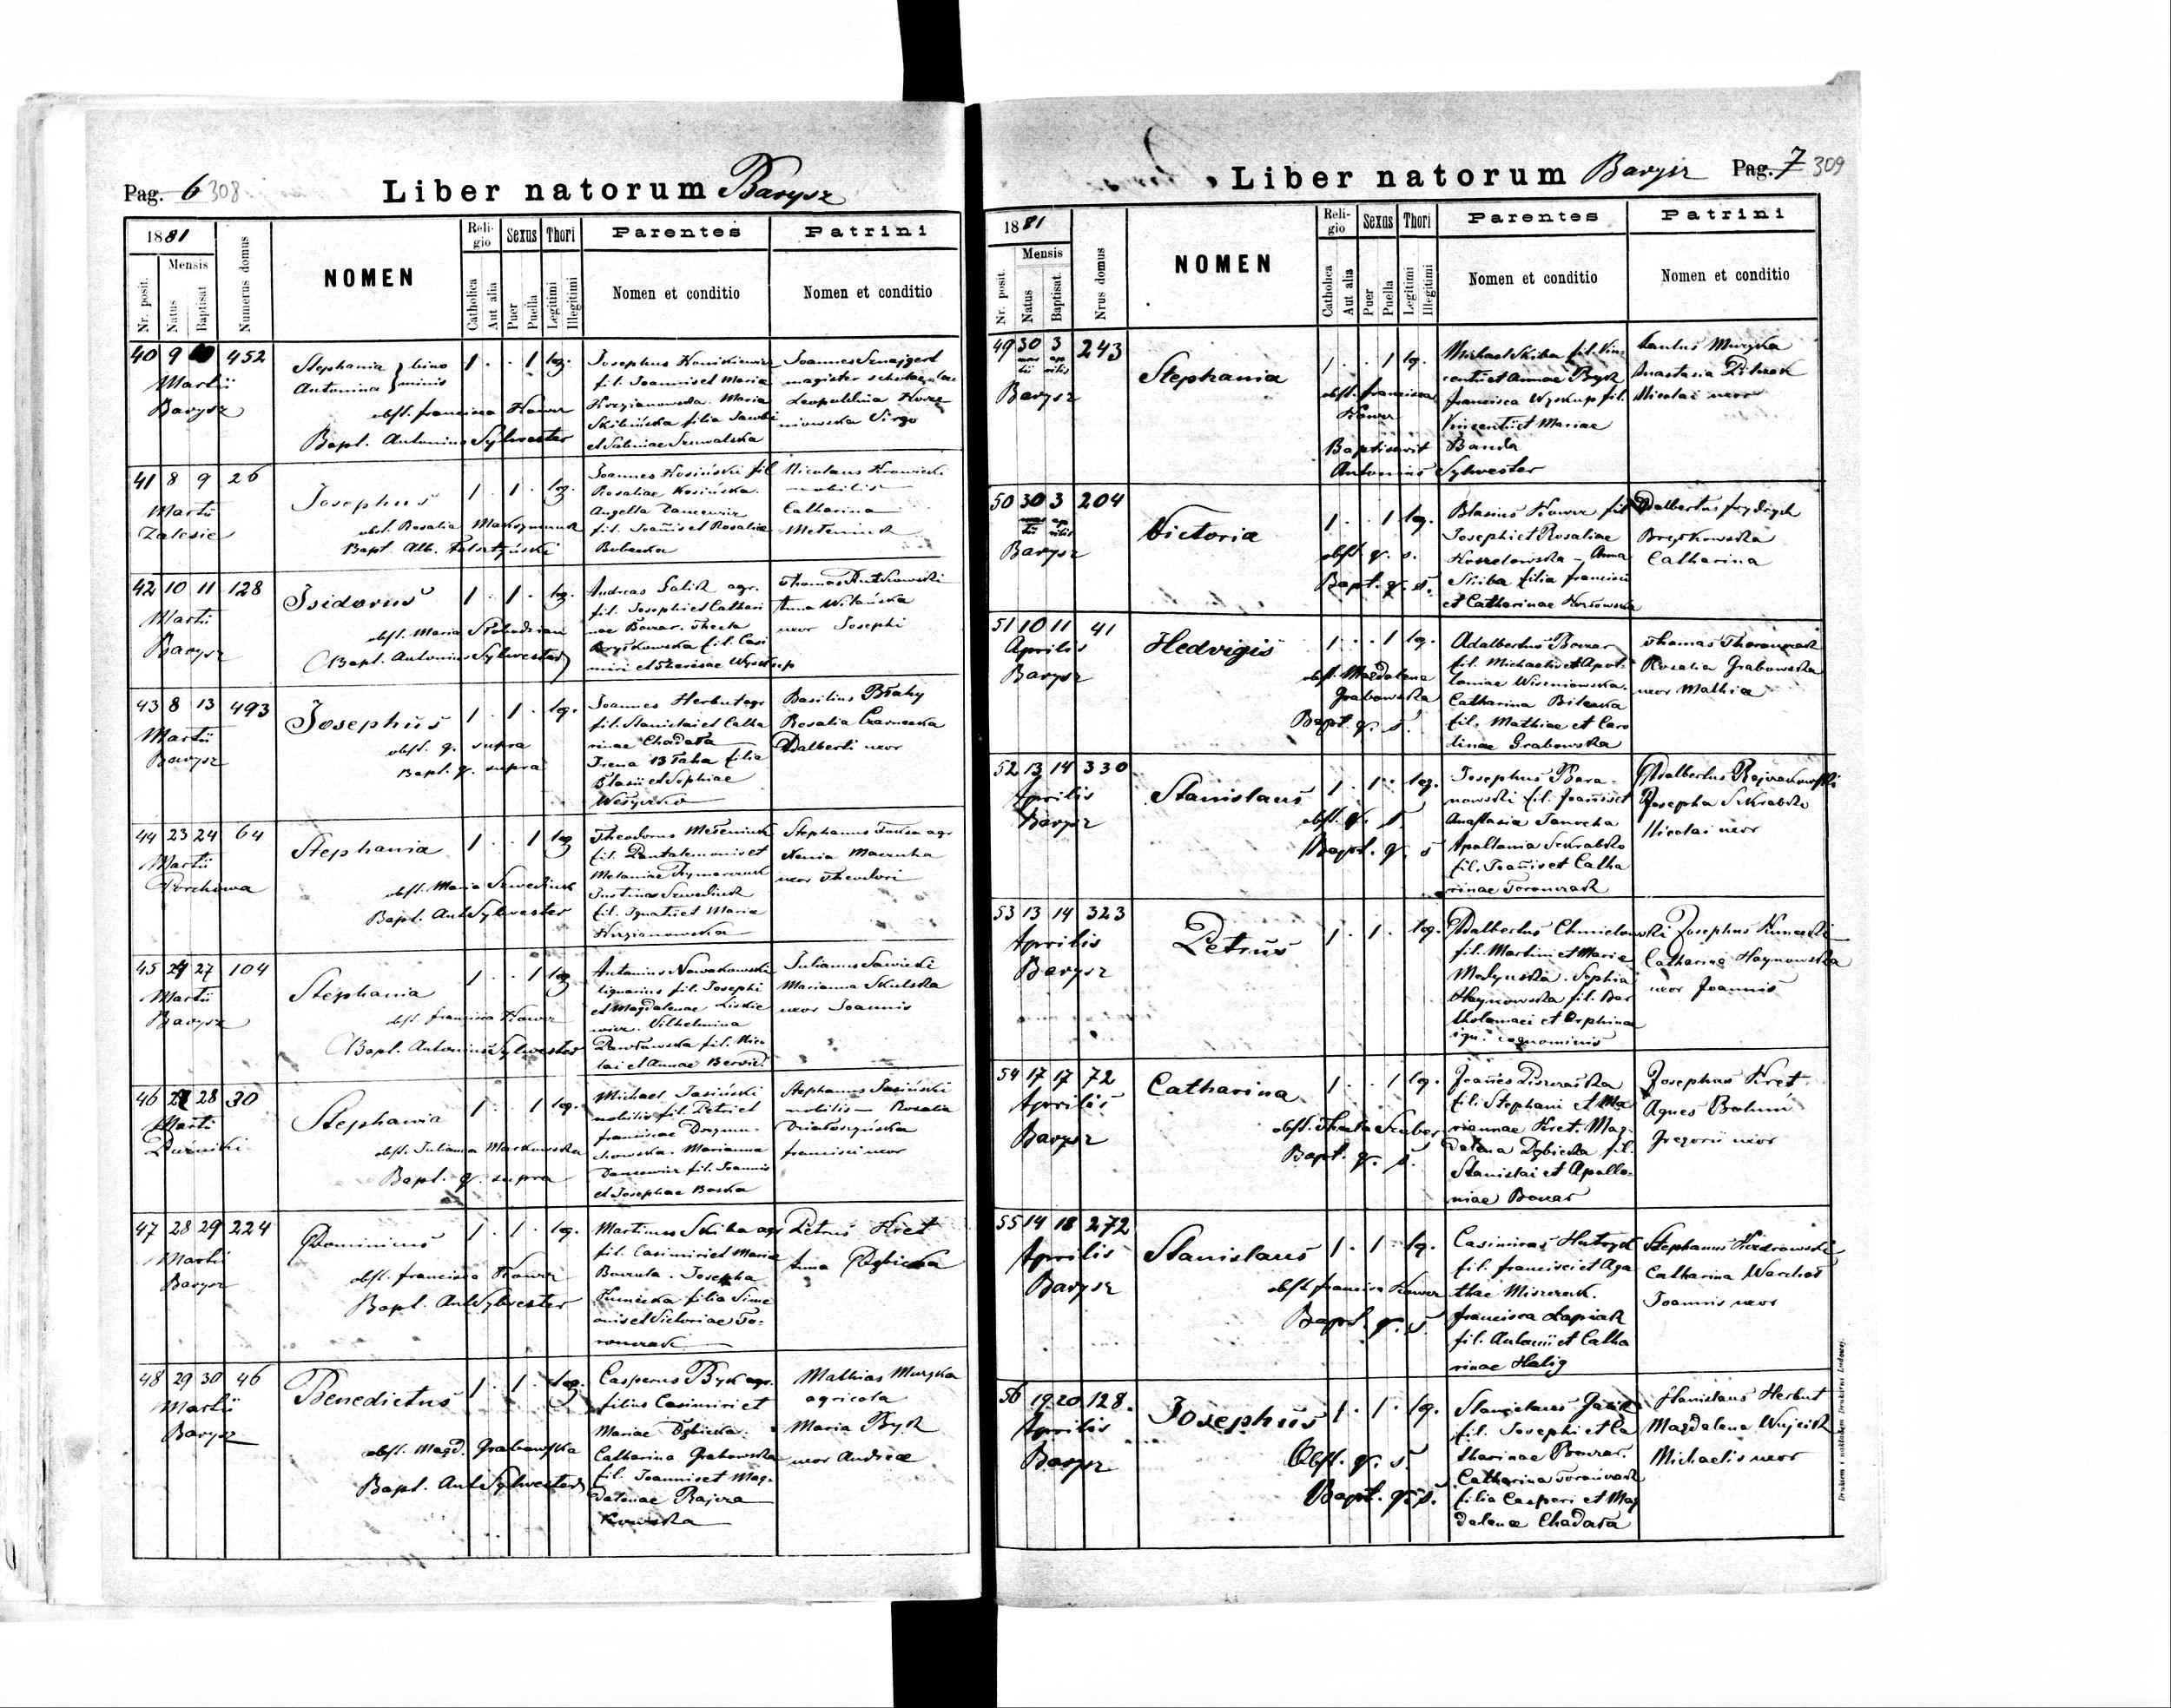 Pag. 6 308
Liber natorum Barysz
1881
Mensis
Nr. posit.
Natus
Baptisat
Numerus domus
NOMEN
Reli-
gio
Sexus
Thori
Catholica
Aut alia
Puer
Puella
Legitimi
Illegitimi
Parentes
Patrini
Nomen et conditio
Nomen et conditio
40 9 10 452
Martii
Barysz
Stephania } bino
Antonina } minis
1 . . 1 leg.
obst. francisca Kawer
Bapt. Antonius Sylvester
Josephus
fil. Joannis et Maria
Krzyianowska. Maria
Skibińska filia Jacobi
et Sabinae Szuwalska
Joannes Szmajgert
magister scholae
Leopoldina
Virgo
41 8 9 26
Martii
Zalesie
Josephus
1 . 1 . leg.
obst. Rosalia
Bapt. Alb.
Joannes Kosiński fil
Rosaliae Kosińska.
Angella Dancewicz
fil. Joannis et Rosaliae
Nicolaus Krawiecki
nobilis
Catharina
42 10 11 128
Martii
Barysz
Isidorus
1 . 1 . leg.
obst. Maria Słobodzian
(Bapt. Antonius Sylvester)
Andreas Galik agr.
fil. Josephi et Cathari
nae Bowar. Thecla
Brytkowska fil. Casi
miri et Theresae Wyskup
Thomas Rutkowski
Anna Witańska
uxor Josephi
43 8 13 493
Martii
Barysz
Josephus
1 . 1 . leg.
obst. q. supra
Bapt. q. supra
Joannes Herbut agr
fil. Stanislai et Catha
rinae Chadała
Irena Błaha filia
Blasii et Sophiae
Basilius Błahy
Rosalia Czarnecka
Adalberti uxor
44 23 24 64
Martii
Porchowa
Stephania
1 . . 1 leg
obst. Maria Szwediuk
Bapt. Ant Sylvester
Theodorus Meteniuk
fil. Pantalemonis et
Melaniae
Justina Szwediuk
fil. Ignatii et Maria
Krzyianowska
Stephanus agr
Xenia
uxor Theodori
45 27 104
Martii
Barysz
Stephania
1 . . 1 leg
obst. francisca Kawer
(Bapt. Antonius Sylvester
Antonius Nowakowski
lignarius fil. Josephi
et Magdalenae Liskie
wicz. Vilhelmina
Pawłowska fil. Nico
lai et Annae
Julianus Sawicki
Marianna Skulska
uxor Joannis
46 28 30
Martii
Stephania
1 . . 1 leg.
obst. Julianna Markowska
Bapt. q. supra
Michael Jasiński
nobilis fil. Petri et
franciscae
Marianna
Dancewicz fil. Joannis
et Josephae
Stephanus Jasiński
nobilis — Rosalia
francisci uxor
47 28 29 224
Martii
Barysz
Dominicus
1 . 1 . leg.
obst. francisca Kawer
Bapt. Ant Sylvester
Martinus Skiba agr
fil. Casimiri et Maria
Josepha
Kunicka filia Sime
onis et Victoriae To-
ronczak
Petrus Kret
Anna Dębicka
48 29 30 46
Martii
Barysz
Benedictus
1 . 1 . leg.
obst. Magd. Grabowska
Bapt. Ant Sylvester
Casperus Byk agr.
filius Casimiri et
Mariae Dębicka.
Catharina Grabowska
fil. Joannis et Mag-
dalenae Rajcza
kowska
Mathias Muzyka
agricola
Maria Byk
uxor Andreae
Liber natorum Barysz
Pag. 7 309
1881
Mensis
Nr. posit.
Natus
Baptisat.
Nrus domus
NOMEN
Reli-
gio
Sexus
Thori
Catholica
Aut alia
Puer
Puella
Legitimi
Illegitimi
Parentes
Patrini
Nomen et conditio
Nomen et conditio
49 30 3 243
mar ap
tii rilis
Barysz
Stephania
1 . . 1 leg.
obst. francisca
Kawer
Baptisavit
Antonius Sylvester
Michael Skiba fil. Vin
centii et Annae Byk
francisca Wyskup fil.
Vincentii et Mariae
Banda
Muzyka
Anastasia
Nicolai uxor
50 30 3 204
mar ap
tii rilis
Barysz
Victoria
1 . . 1 leg.
obst. q. s.
Bapt. q. s.
Blasius Kawer fil
Josephi et Rosaliae
Anna
Skiba filia francisci
et Catharinae Kozłowska
Adalbertus frydrych
Brytkowska
Catharina
51 10 11 41
Aprilis
Barysz
Hedvigis
1 . . 1 leg.
obst. Magdalena
Grabowska
Bapt. q. s.
Adalbertus Bowar
fil. Michaelis et Apol-
loniae Wiszniowska.
Catharina
fil. Mathiae et Caro
linae Grabowska
Thomas Thoronczak
Rosalia Grabowska
uxor Mathia
52 13 14 330
Aprilis
Barysz
Stanislaus
1 . 1 . leg.
obst. q. s.
Bapt. q. s
Josephus Bara-
nowski fil. Joannis et
Anastasia Janocha
Apollonia Szkrabko
fil. Joannis et Catha
rinae Toronczak
Adalbertus Rajczakowski
Josepha Szkrabko
Nicolai uxor
53 13 14 323
Aprilis
Barysz
Petrus
1 . 1 . leg.
Adalbertus Chmielowski
fil. Martini et Maria
Medynska. Sophia
Haynowska fil. Bar
tholomaei et Orphina
ign. cognominis
Josephus Kunecki
Catharina Haynowska
uxor Joannis
54 17 17 72
Aprilis
Barysz
Catharina
1 . . 1 leg.
obst. Thecla
Bapt. q. s.
Joannes
fil. Stephani et Ma
riannae Kret. Mag-
dalena Dębicka fil.
Stanislai et Apollo-
niae Bowar
Josephus Kret
Agnes
Gregorii uxor
55 14 18 272
Aprilis
Barysz
Stanislaus
1 . 1 . leg.
obst. francisca Kawer
Bapt. q. s.
Casimirus
fil. francisci et Aga
thae
francisca Łapiak
fil. Antonii et Catha
rinae Halig
Stephanus
Catharina Warchoł
Joannis uxor
56 19 20 128.
Aprilis
Barysz
Josephus
1 . 1 . leg.
Obst. q. s.
Bapt. q. s.
Stanislaus Galik
fil. Josephi et Ca
tharinae Bowar.
Catharina Toronczak
filia Casperi et Mag
dalenae Chadała
Stanislaus Herbut
Magdalena Wujcik
Michaelis uxor
Drukiem i nakładem Drukarni Ludowej.